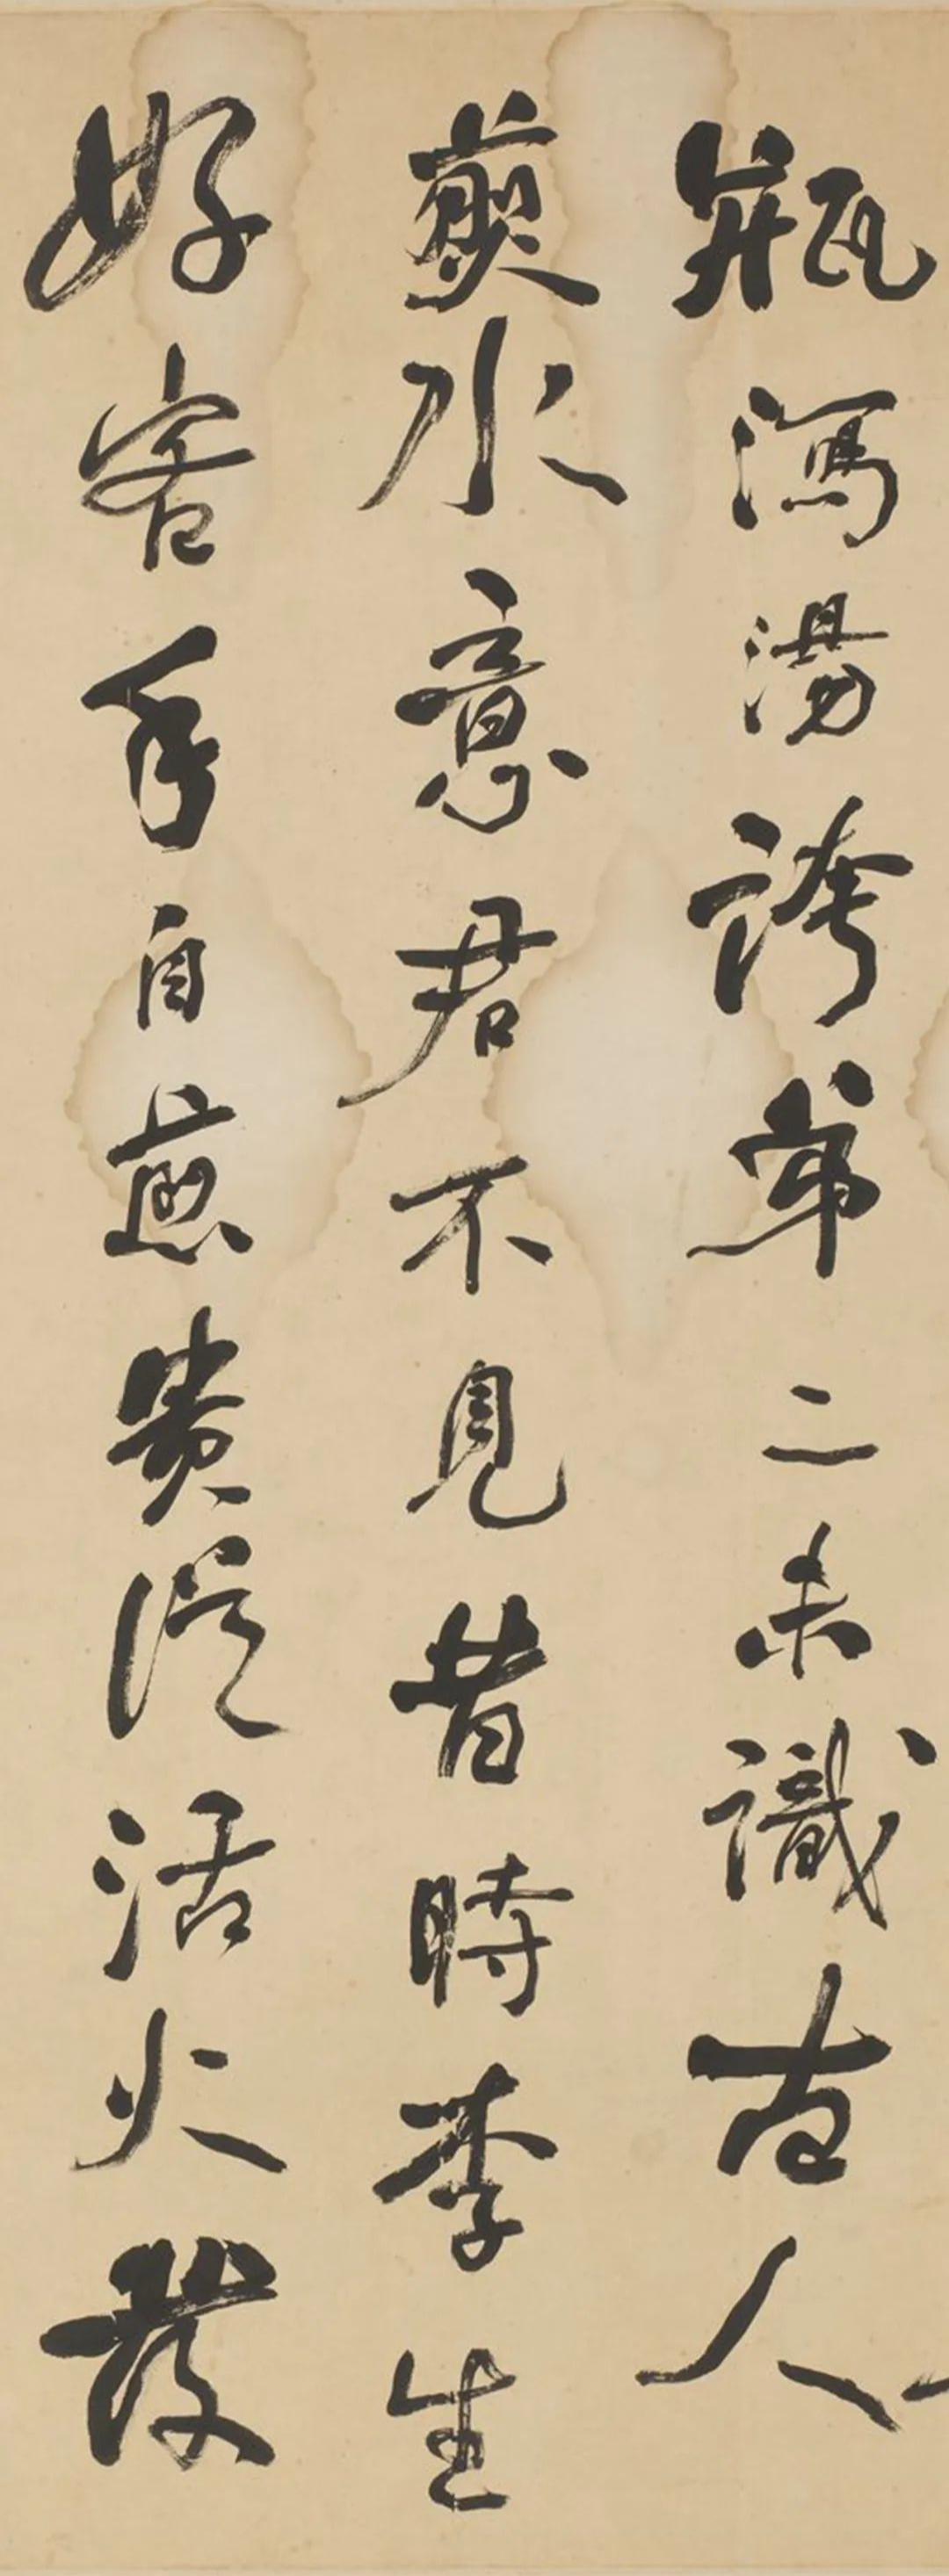 瓶瀉湯誇第二未識古人
煎水意君不見昔時李生
好客手自煎貴從活火發